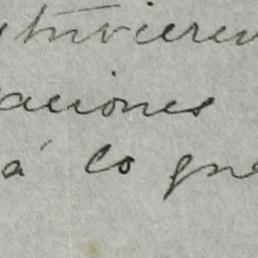 tuvieren
aciones
á lo que